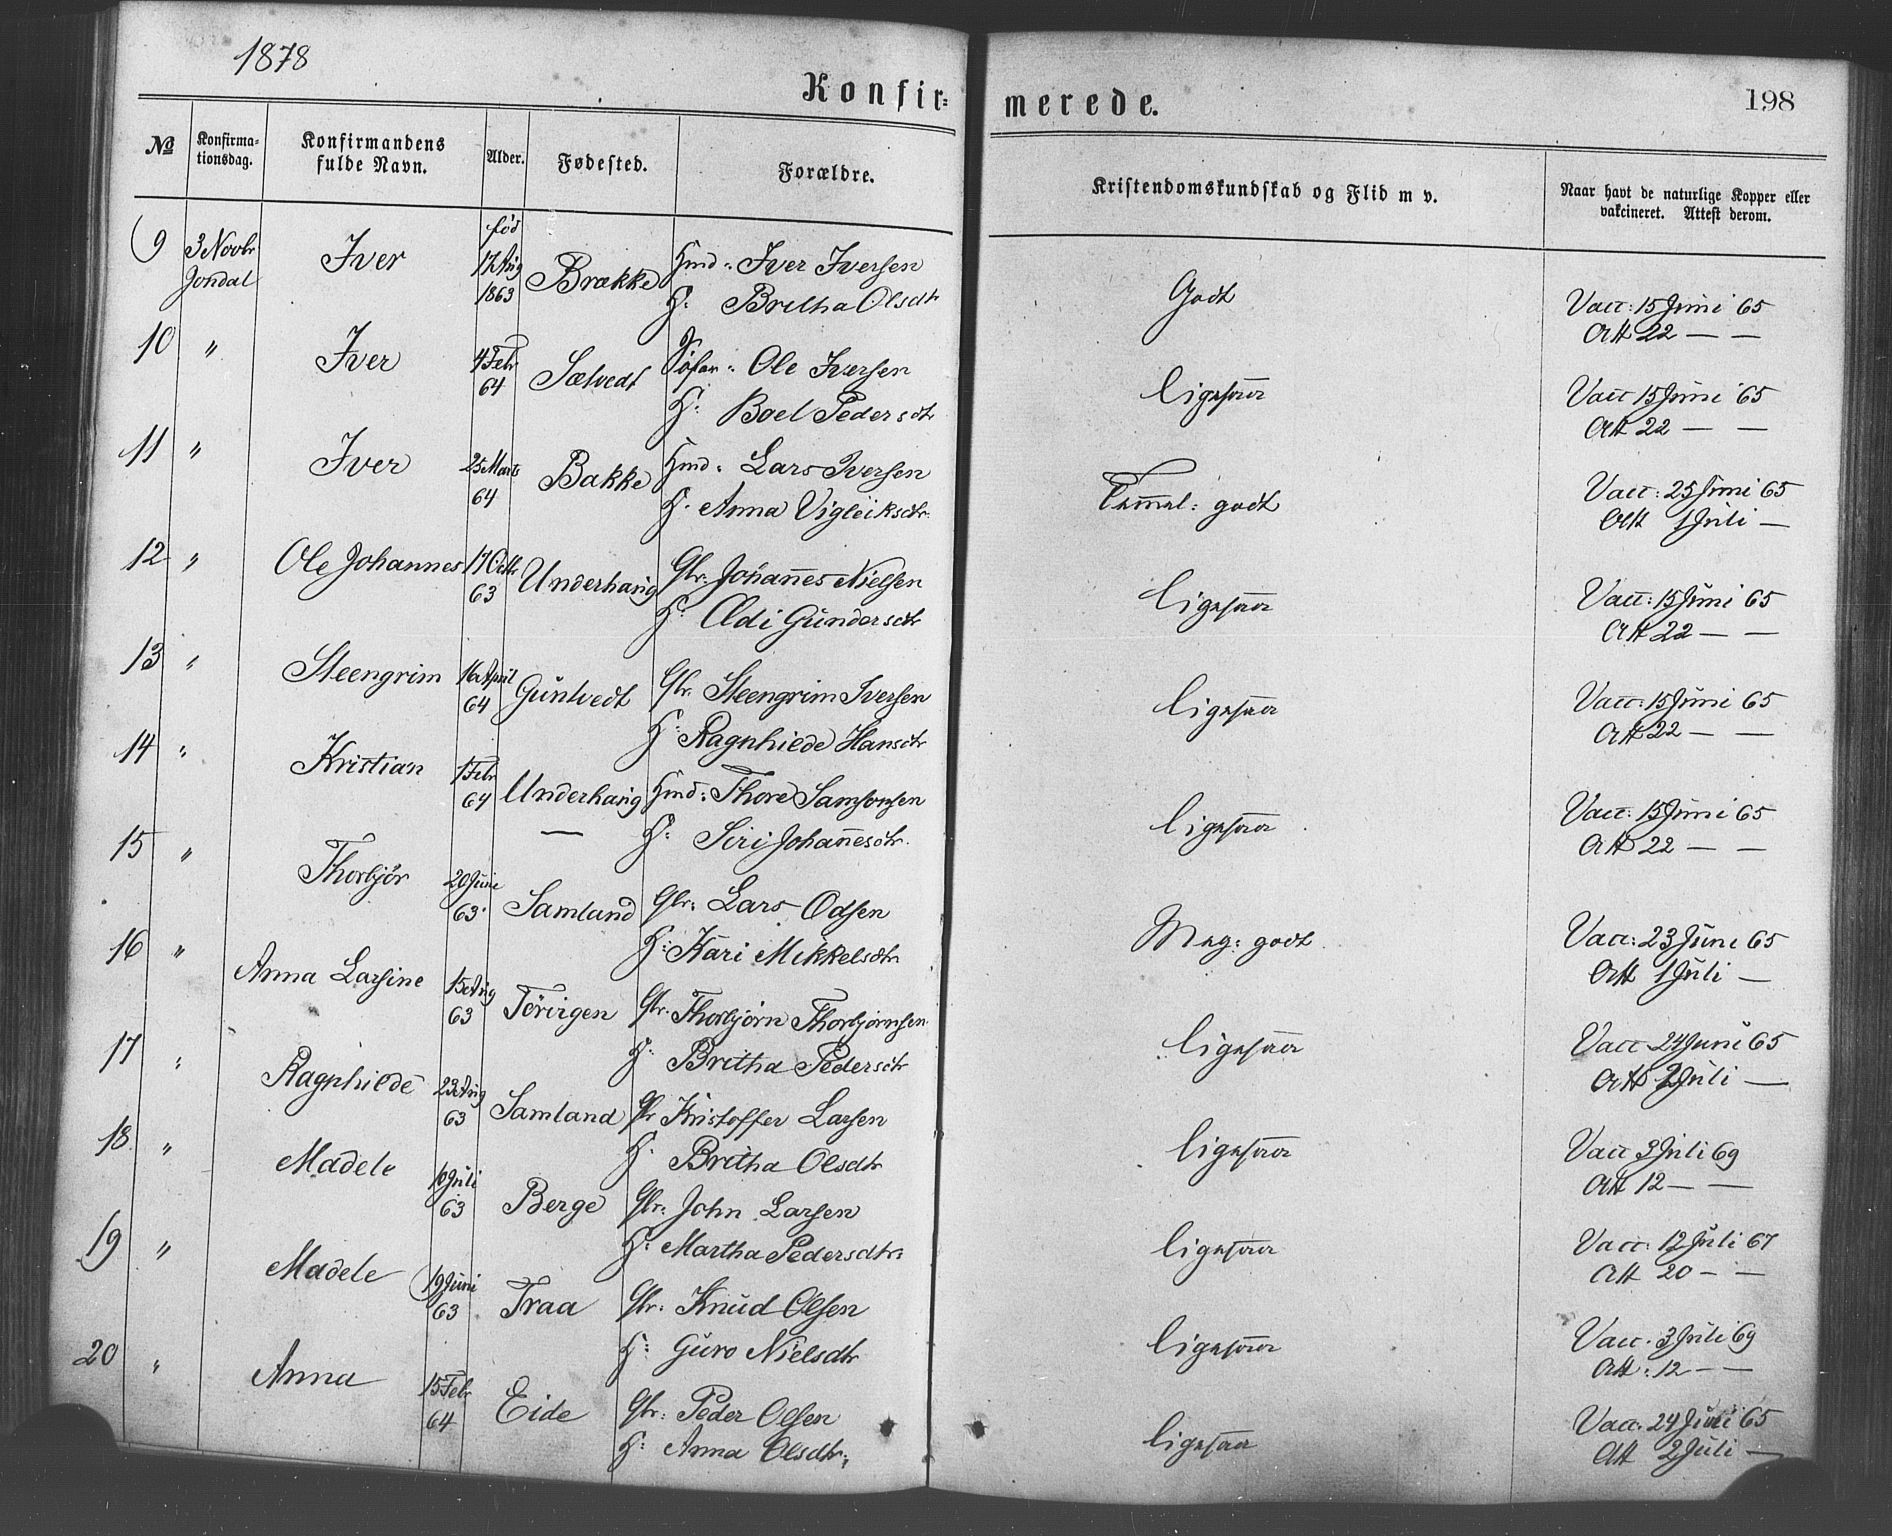 1878
Konfir=
merede.
198
No
Konfirma-
tionsdag.
Konfirmandens
fulde Navn.
Alder.
Fødested.
Forældre.
Kristendomskundskab og Flid m v.
Naar havt de naturlige Kopper eller
vakcineret. Attest derom.
9 3 Novbr Jondal Iver fød 17 Aug 1863 Brække Hmd: Iver Iversen
H: Britha Olsdtr
Godt
Vacc: 15 Juni 65
Att 22 — —
10 " Iver 4 Febr 64 Sælvedt Ole Iversen
H: Boel Pedersdtr
ligesaa
Vacc 15 Juni 65
Att 22 — —
11 " Iver 25 Marts 64 Bakke Hmd: Lars Iversen
H. Anna Vigleiksdtr.
Temmel: godt
Vacc: 25 Juni 65
Att 1 Juli —
12 " Ole Johannes 17 Octbr 63 Underhaug Gbr: Johannes Nielsen
H: Aldi Gundersdtr
ligesaa
Vacc: 15 Juni 65
Att 22 — —
13 " Steengrim 16 April 64 Guntvedt Gbr. Steengrim Iversen
H: Ragnhilde Hansdtr
ligesaa
Vacc: 15 Juni 65
Att 22 — —
14 " Kristian 1 Febr 64 Underhaug Hmd: Thore Samsonsen
— H: Siri Johannesdtr.
ligesaa
Vacc: 15 Juni 65
Att 22 — —
15 " Thorbjør 20 Juni 63 Samland Gbr: Lars Odsen
H: Kari Mikkelsdtr
Meg: godt
Vacc: 23 Juni 65
Att 1 Juli —
16 " Anna Larsine 15 Aug 63 Tørvigen Gbr. Thorbjørn Thorbjørnsen
H: Britha Pedersdtr
ligesaa
Vacc 24 Juni 65
Att 2 Juli —
17 " Ragnhilde 23 Aug 63 Samland Gbr Kristoffer Larsen
H. Britha Olsdtr
ligesaa
Vacc 3 Juli 69
Att 12 — —
18 " Madele 10 Juli 63 Berge Gbr: John Larsen
H: Martha Pedersdtr:
ligesaa
Vacc: 12 Juli 67
Att 20 — —
19 " Madele 19 Juni 63 Traa Gbr: Knud Olsen
H: Guro Nielsdtr
ligesaa
Vacc. 3 Juli 69
Att: 12 — —
20 " Anna 15 Febr 64 Eide Gbr: Peder Olsen
H: Anna Olsdtr:
ligesaa
Vacc. 24 Juni 65
Att 2 Juli —